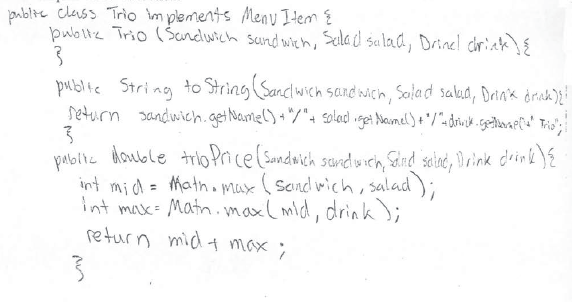 public class Trio implements Menu Item {
public Trio (Sandwich sandwich, Salad salad, Drink drink) {
}
public String toString(Sandwich sandwich, Salad salad, Drink drink) {
return sandwich.getName() + "/" + salad.getName() + "/" + drink.getName() + " Trio";
}
public double trioPrice (Sandwich sandwich, Salad salad, Drink drink) {
int mid = Math.max (sandwich, salad);
int max = Math.max(mid, drink);
return mid + max ;
}